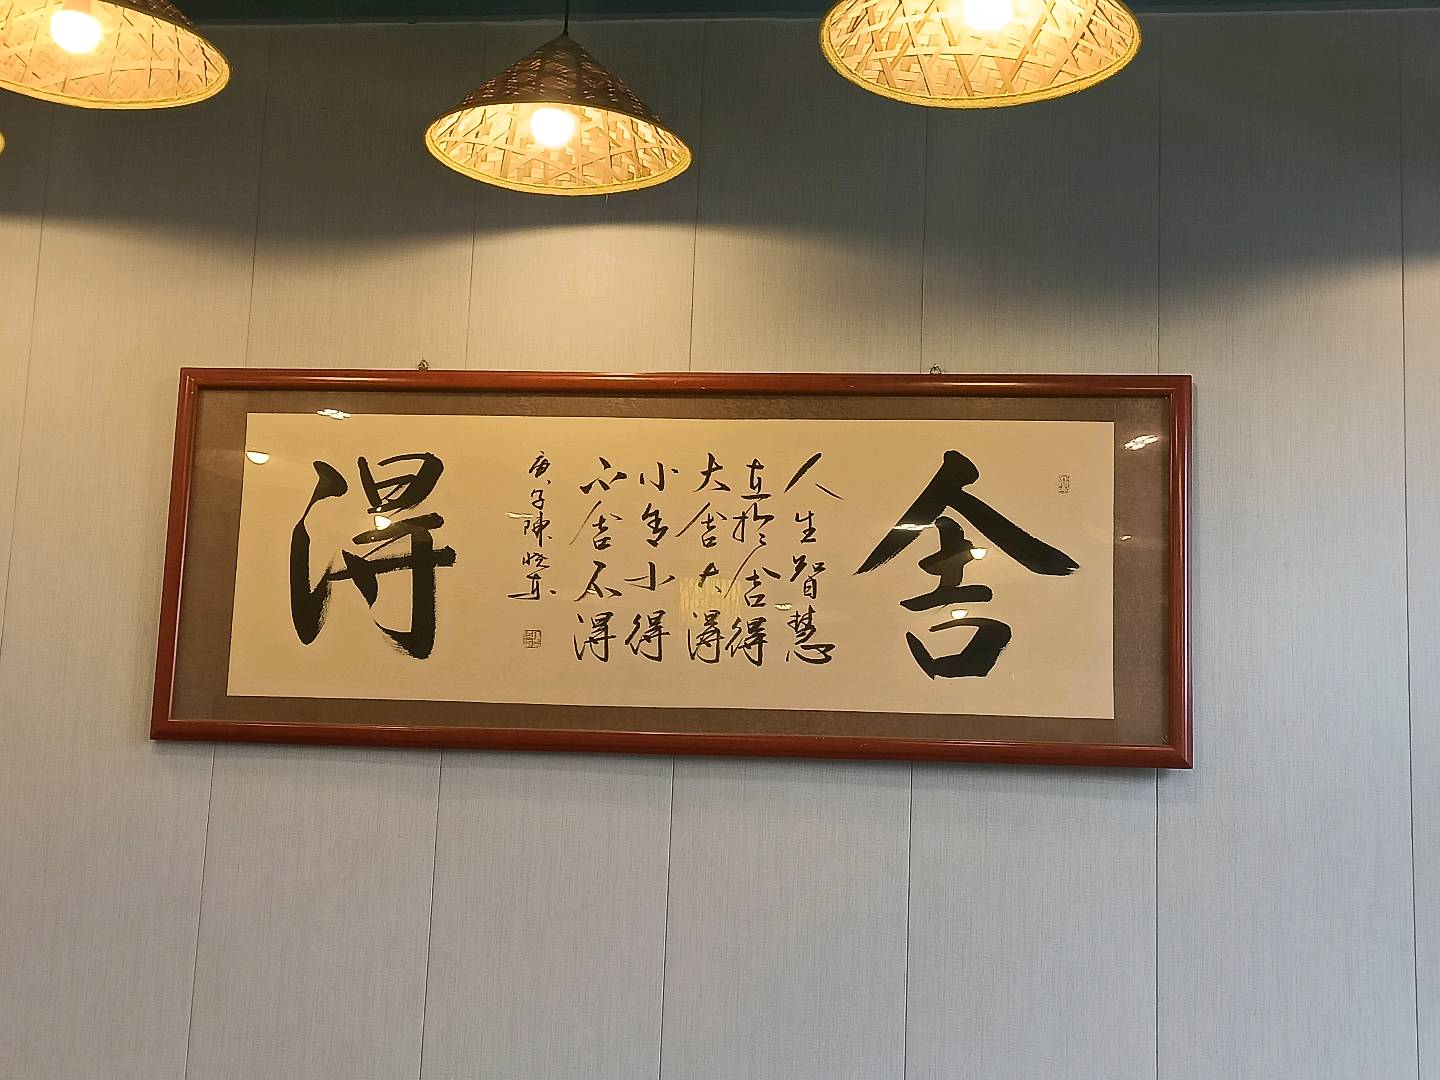 舍
人生智慧
在於舍得
大舍大得
小舍小得
不舍不得
庚子陳悅東
得